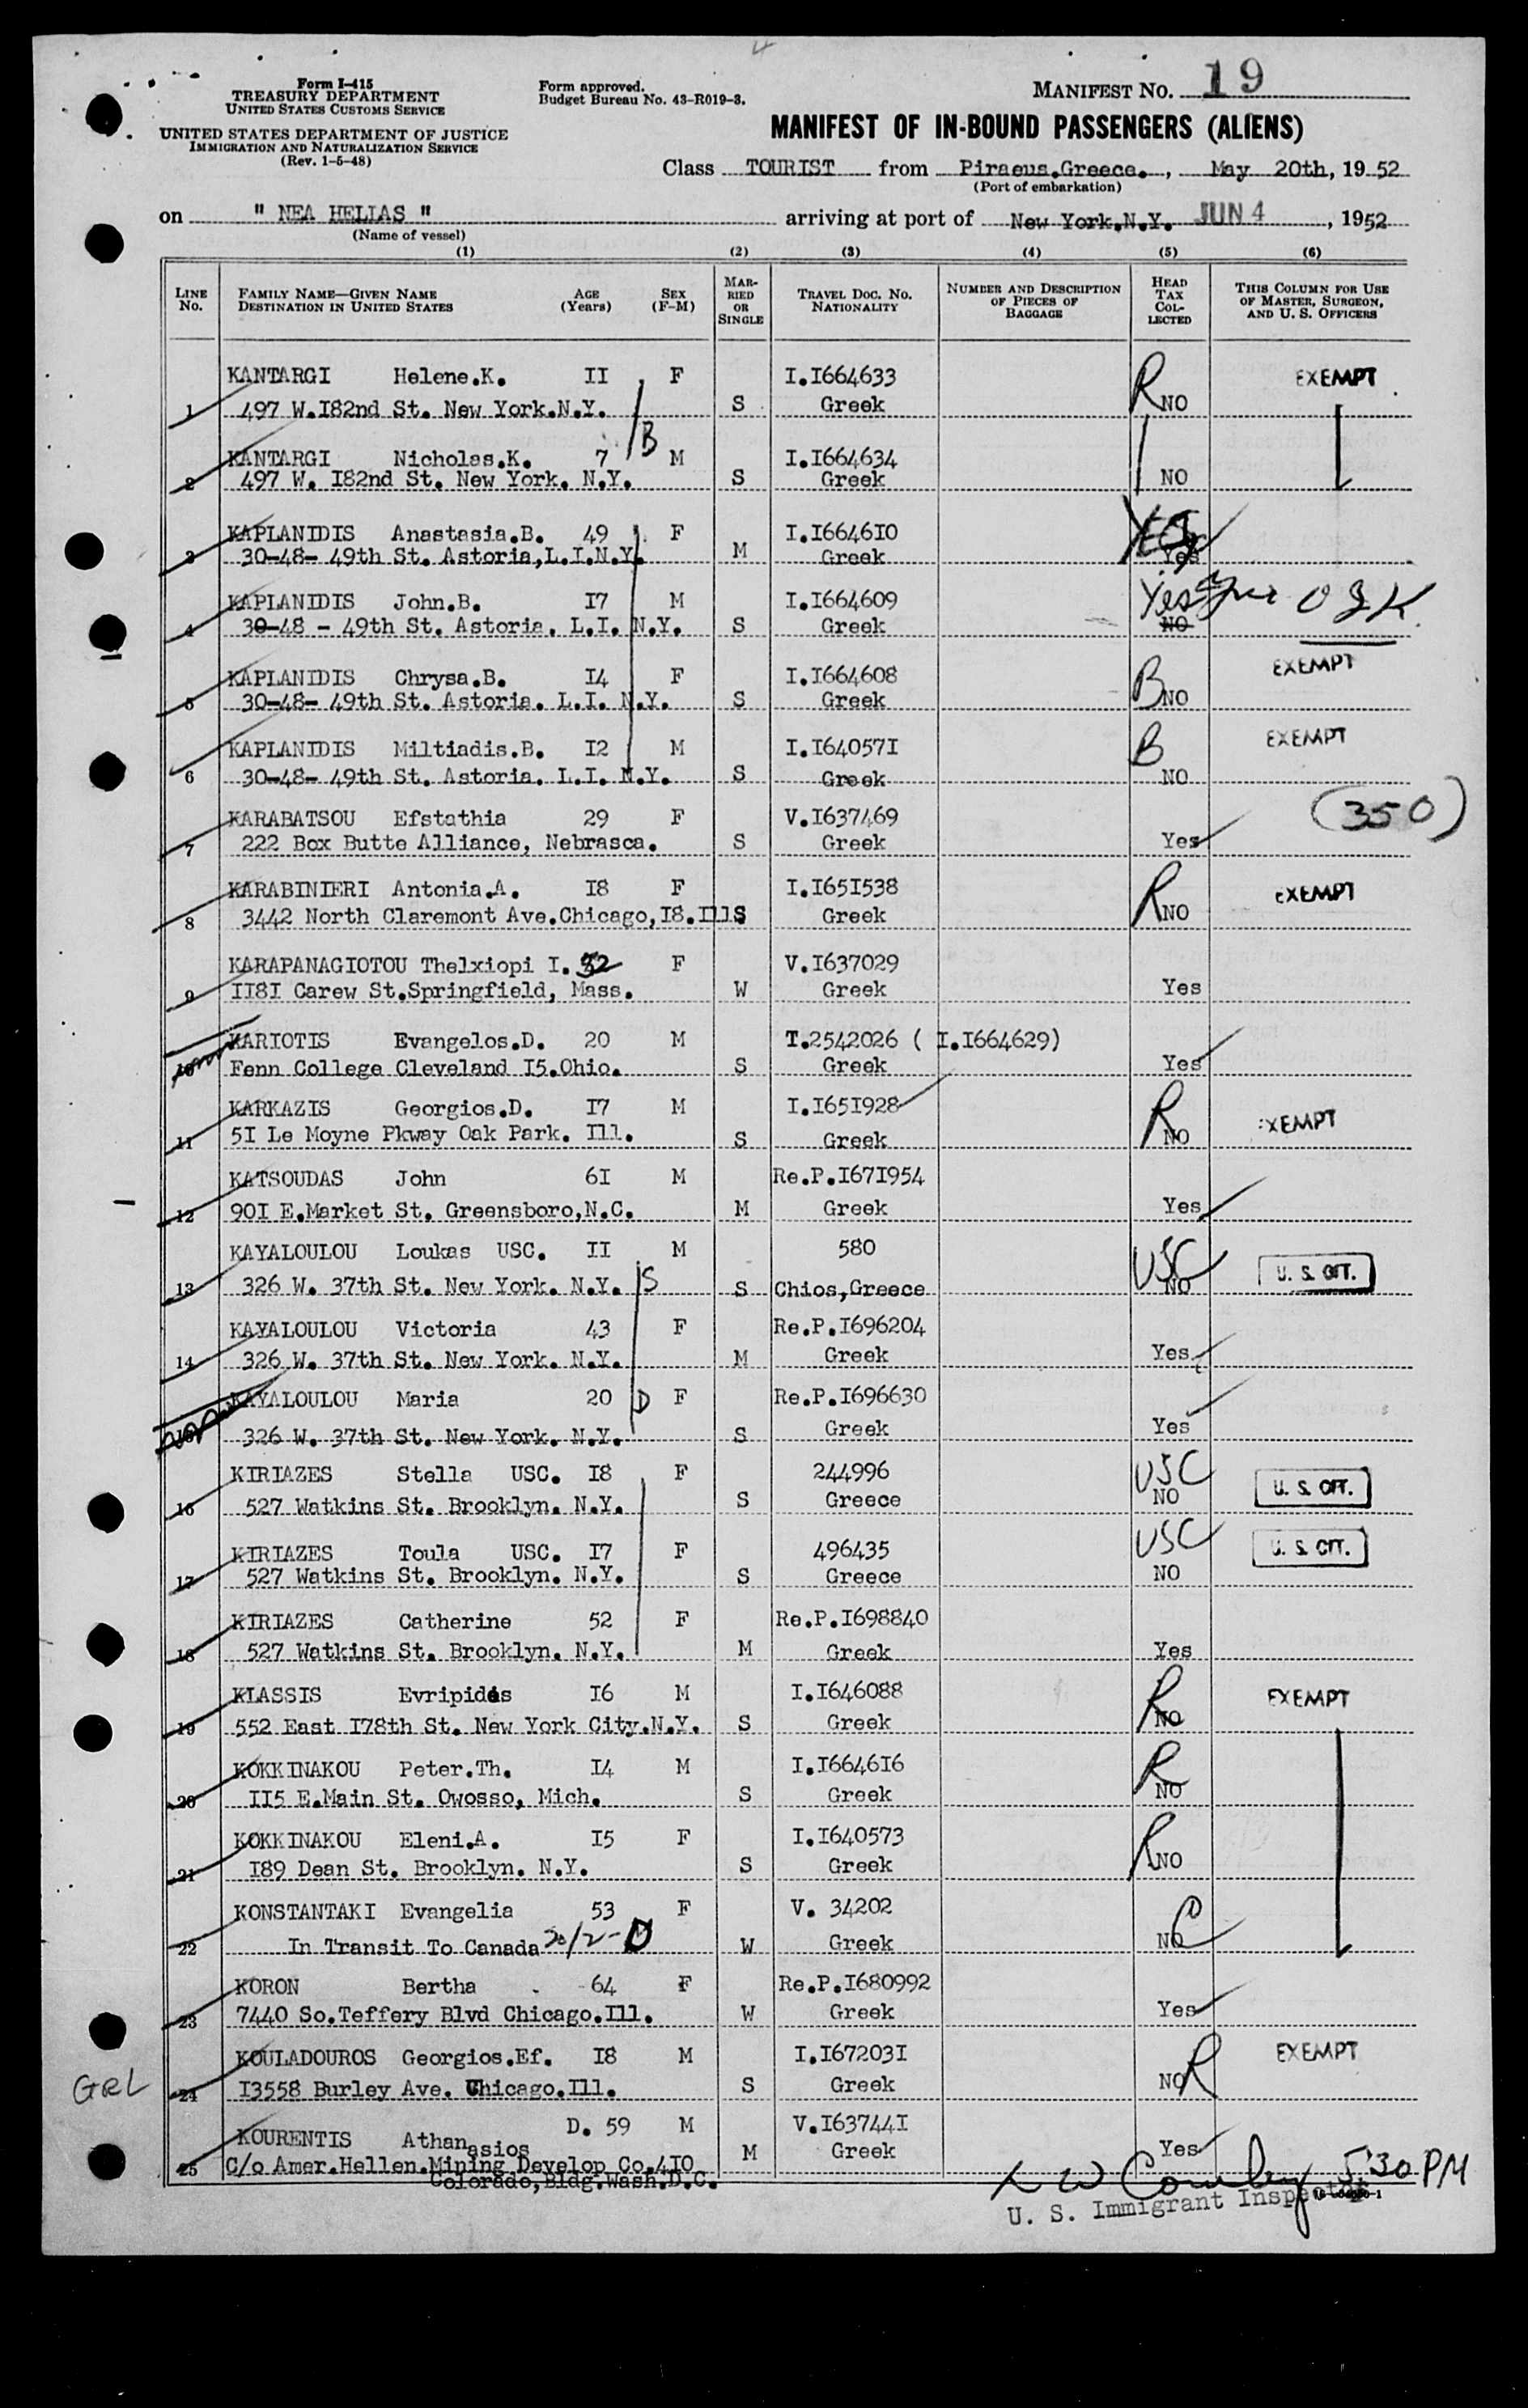 Form I-415
TREASURY DEPARTMENT
UNITED STATES CUSTOMS SERVICE
UNITED STATES DEPARTMENT OF JUSTICE
IMMIGRATION AND NATURALIZATION SERVICE
(Rev. 1-5-48)
Form approved.
Budget Bureau No. 43-R019-3.
MANIFEST No. 19
MANIFEST OF IN-BOUND PASSENGERS (ALIENS)
Class TOURIST from Piraeus.Greece., May 20th, 1952
(Port of embarkation)
on " NEA HELLAS " arriving at port of New York.N.Y. JUN 4, 1952
(Name of vessel)
(1) (2) (3) (4) (5) (6)
LINE No. FAMILY NAME—GIVEN NAME DESTINATION IN UNITED STATES AGE (Years) SEX (F-M) MARRIED OR SINGLE TRAVEL DOC. NO. NATIONALITY NUMBER AND DESCRIPTION OF PIECES OF BAGGAGE HEAD TAX COLLECTED THIS COLUMN FOR USE OF MASTER, SURGEON, AND U. S. OFFICERS
KANTARGI Helene.K. II F I.I664633 R EXEMPT
1 497 W.I82nd St. New York.N.Y. S Greek NO
B
KANTARGI Nicholas.K. 7 M I.I664634
2 497 W. I82nd St. New York. N.Y. S Greek NO
KAPLANIDIS Anastasia.B. 49 F I.I6646I0 YES
3 30-48- 49th St. Astoria,L.I.N.Y. M Greek Yes
KAPLANIDIS John.B. I7 M I.I664609 Yes
4 30-48 - 49th St. Astoria. L.I. N.Y. S Greek NO
KAPLANIDIS Chrysa.B. I4 F I.I664608 B EXEMPT
5 30-48- 49th St. Astoria. L.I. N.Y. S Greek NO
KAPLANIDIS Miltiadis.B. I2 M I.I64057I B EXEMPT
6 30-48- 49th St. Astoria. L.I. N.Y. S Greek NO
KARABATSOU Efstathia 29 F V.I637469 (350)
7 222 Box Butte Alliance, Nebrasca. S Greek Yes
KARABINIERI Antonia.A. I8 F I.I65I538 R EXEMPT
8 3442 North Claremont Ave.Chicago,I8.Ill. S Greek NO
KARAPANAGIOTOU Thelxiopi I. 52 F V.I637029
9 II8I Carew St.Springfield, Mass. W Greek Yes
KARIOTIS Evangelos.D. 20 M T.2542026 ( I.I664629)
10 Fenn College Cleveland I5.Ohio. S Greek Yes
KARKAZIS Georgios.D. I7 M I.I65I928 R EXEMPT
11 5I Le Moyne Pkway Oak Park. Ill. S Greek NO
KATSOUDAS John 6I M Re.P.I67I954
12 90I E.Market St. Greensboro,N.C. M Greek Yes
KAYALOULOU Loukas USC. II M 580 USC U. S. CIT.
13 326 W. 37th St. New York. N.Y. S S Chios,Greece NO
KAYALOULOU Victoria 43 F Re.P.I696204
14 326 W. 37th St. New York. N.Y. M Greek Yes
KAYALOULOU Maria 20 D F Re.P.I696630
15 326 W. 37th St. New York. N.Y. S Greek Yes
KIRIAZES Stella USC. I8 F 244996 USC U. S. CIT.
16 527 Watkins St. Brooklyn. N.Y. S Greece NO
KIRIAZES Toula USC. I7 F 496435 USC U. S. CIT.
17 527 Watkins St. Brooklyn. N.Y. S Greece NO
KIRIAZES Catherine 52 F Re.P.I698840
18 527 Watkins St. Brooklyn. N.Y. M Greek Yes
KLASSIS Evripides I6 M I.I646088 R EXEMPT
19 552 East I78th St. New York City.N.Y. S Greek NO
KOKKINAKOU Peter.Th. I4 M I.I6646I6 R
20 II5 E.Main St. Owosso, Mich. S Greek NO
KOKKINAKOU Eleni.A. I5 F I.I640573 R
21 I89 Dean St. Brooklyn. N.Y. S Greek NO
KONSTANTAKI Evangelia 53 F V. 34202 C
22 In Transit To Canada 30/2-D W Greek NO
KORON Bertha 64 F Re.P.I680992
23 7440 So.Teffery Blvd Chicago.Ill. W Greek Yes
KOULADOUROS Georgios.Ef. I8 M I.I67203I R EXEMPT
GRL 24 I3558 Burley Ave. Chicago.Ill. S Greek NO
KOURENTIS Athanasios D. 59 M V.I63744I
25 C/o Amer.Hellen.Mining Develop Co.4I0 M Greek Yes
Colorado,Bldg.Wash.D.C.
5:30 PM
U. S. Immigrant Inspector